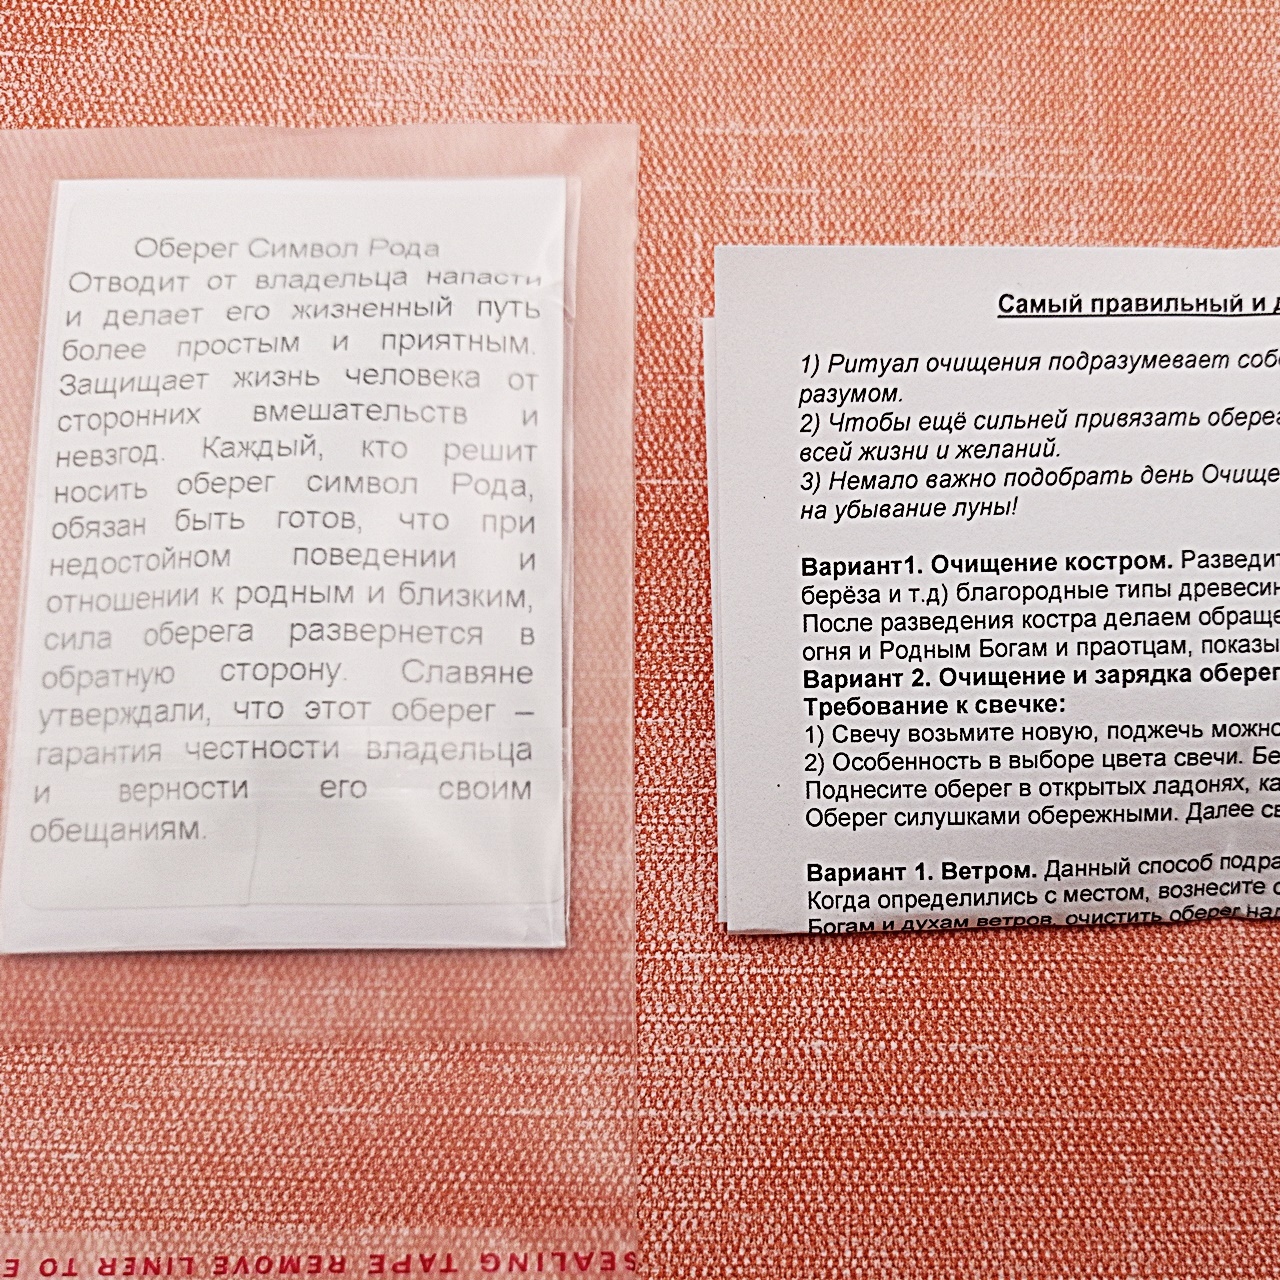 Оберег Символ Рода
Отводит от владельца напасти
и делает его жизненный путь
более простым и приятным.
Защищает жизнь человека от
сторонних вмешательств и
невзгод. Каждый, кто решит
носить оберег символ Рода,
обязан быть готов, что при
недостойном поведении и
отношении к родным и близким,
сила оберега развернется в
обратную сторону. Славяне
утверждали, что этот оберег –
гарантия честности владельца
и верности его своим
обещаниям.
SEALING TAPE REMOVE LINER TO E
Самый правильный и д
1) Ритуал очищения подразумевает собо
разумом.
2) Чтобы ещё сильней привязать оберег
всей жизни и желаний.
3) Немало важно подобрать день Очище
на убывание луны!
Вариант1. Очищение костром. Разведит
берёза и т.д) благородные типы древесин
После разведения костра делаем обраще
огня и Родным Богам и праотцам, показы
Вариант 2. Очищение и зарядка оберег
Требование к свечке:
1) Свечу возьмите новую, поджечь можно
2) Особенность в выборе цвета свечи. Бе
Поднесите оберег в открытых ладонях, ка
Оберег силушками обережными. Далее св
Вариант 1. Ветром. Данный способ подра
Когда определились с местом, вознесите с
Богам и духам ветров, очистить оберег нал